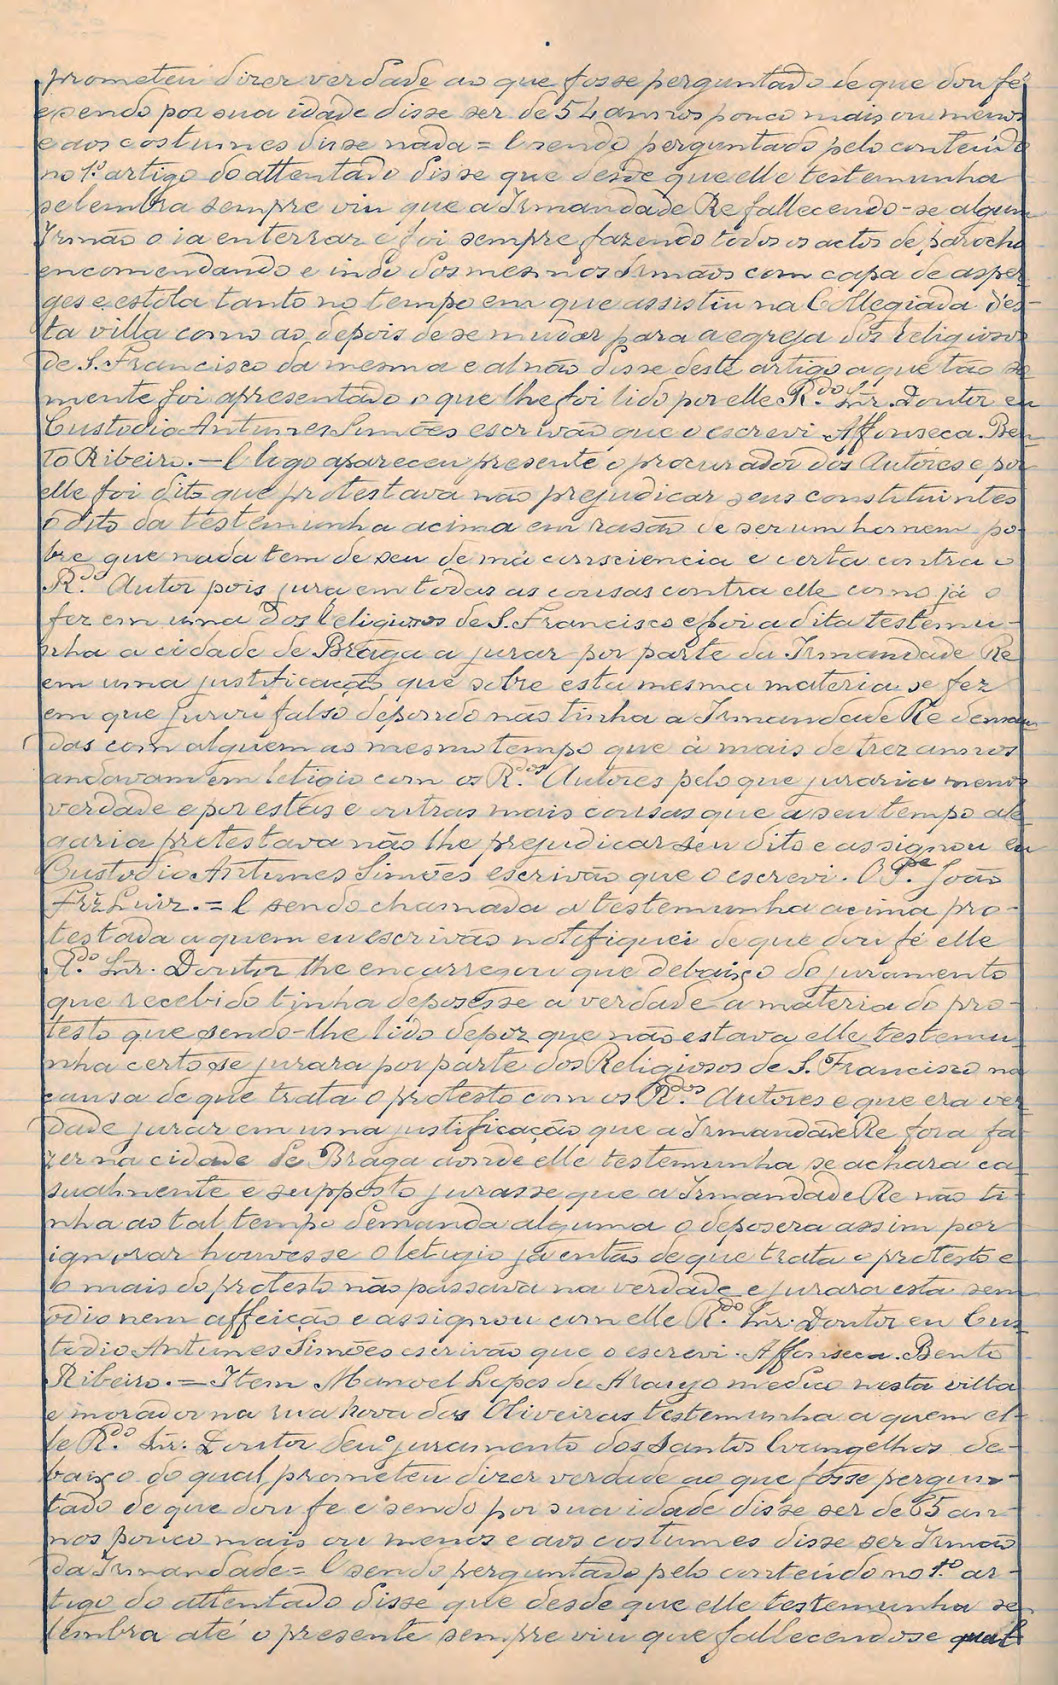 prometeu dizer verdade ao que fosse perguntado de que dou fé
e sendo por sua idade disse ser de 54 annos pouco mais ou menos
e aos costumes disse nada = E sendo perguntado pelo conteúdo
no 1.º artigo do attentado disse que desde que elle testemunha
se lembra sempre viu que a Irmandade Re fallecendo-se algum
Irmão o ia enterrar e foi sempre fazendo todos os actos de parocho
encomendando e indo dos mesmos Irmãos com capa de asper-
ges e estola tanto no tempo em que assistiu na Collegiada des-
ta villa como ao depois de se mudar para a egreja dos Religiosos
de S. Francisco da mesma e al não disse deste artigo a que tão so
mente foi apresentado o que lhe foi lido por elle R.do Snr. Doutor eu
Custodio Antunes Simões escrivão que o escrevi. Affonseca. Ben-
to Ribeiro. — E logo apareceu presente o procurador dos Autores e por
elle foi dito que protestava não prejudicar seus constituintes
o dito da testemunha acima em rasão de ser um homem po-
bre que nada tem de seu de má consciencia e certa contra o
R.do Autor pois jura em todas as cousas contra elle como já o
fez em uma dos Religiosos de S. Francisco e foi a dita testemu-
nha a cidade de Braga a jurar por parte da Irmandade Re
em uma justificação que sobre esta mesma materia se fez
em que jurou falso depondo não tinha a Irmandade Re deman-
das com alguem ao mesmo tempo que à mais de trez annos
andavam em letigio com os R.dos Autores pelo que juraria menos
verdade e por estas e outras mais cousas que a seu tempo ale-
garia protestava não lhe prejudicar seu dito e assignou eu
Custodio Antunes Simões escrivão que o escrevi. O P.e João
Frz Luiz. = E sendo chamada a testemunha acima pro-
testada a quem eu escrivão notifiquei de que dou fé elle
R.do Snr. Doutor lhe encarregou que debaixo do juramento
que recebido tinha deposesse a verdade a materia do pro-
testo que sendo-lhe lido depoz que não estava elle testemu-
nha certo se jurara por parte dos Religiosos de S. Francisco na
causa de que trata o protesto com os R.dos Autores e que era ver-
dade jurar em uma justificação que a Irmandade Re fora fa-
zer na cidade de Braga aonde elle testemunha se achara ca-
sualmente e supposto jurasse que a Irmandade Re não ti-
nha ao tal tempo demanda alguma o deposera assim por
ignorar houvesse o letigio já então de que trata o protesto e
o mais do protesto não passava na verdade e jurara esta sem
odio nem affeição e assignou com elle R.do Snr. Doutor eu Cus-
todio Antunes Simões escrivão que o escrevi. Affonseca. Bento
Ribeiro. = Item Manoel Lopes de Araujo medico nesta villa
e morador na rua Nova das Oliveiras testemunha a quem el-
le R.do Snr. Doutor deu o juramento dos Santos Evangelhos de-
baixo do qual prometeu dizer verdade ao que fosse pergun-
tado de que dou fe e sendo por sua idade disse ser de 65 an-
nos pouco mais ou menos e aos costumes disse ser Irmão
da Irmandade = E sendo perguntado pelo conteúdo no 1.º ar-
tigo do attentado disse que desde que elle testemunha se
lembra até o presente sempre viu que fallecendose qual